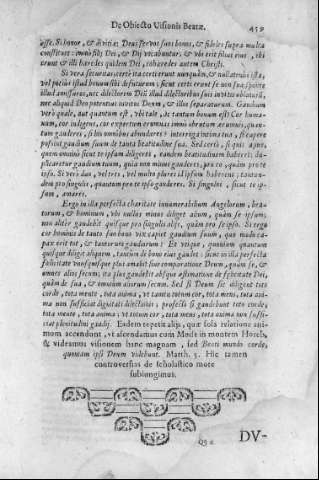 De Obiecto Visionis Beatæ. 459
esse. Si honor, & divitiæ: Deus servos suos bonos, & fideles supra multa
constituet: immo filij Dei, & Dij vocabuntur: & ubi erit filius eius, ibi
erunt & illi hæredes quidem Dei, cohæredes autem Christi.
Si vera securitas: certè ita certi erunt nunquàm, & nullatenus ista,
vel potiùs istud bonum sibi defuturum: sicut certi erunt se non sua sponte
illud amissuros, nec dilectorem Deū illud dilectoribus suis invitis ablaturū,
nec aliquid Deo potentius invitos Deum, & illos separaturum. Gaudium
verò quale, aut quantum est, ubi tale, ac tantum bonum est? Cor humanum,
cor indigens, cor expertum ærumnas immò obrutum ærumnis, quantum
gauderes, si his omnibus abundares? interroga intima tua, si capere
possint gaudium suum de tanta beatitudine sua. Sed certè, si quis alius,
quem omninò sicut te ipsum diligeres, eandem beatitudinem haberet; duplicaretur
gaudium tuum, quia non minus gauderes, pro eo, quàm pro te
ipso. Si verò duo, vel tres, vel multo plures id ipsum haberent; tantundem
pro singulis, quantum pro te ipso gauderes. Si singulos, sicut te ipsum,
amares.
Ergo in illa perfecta charitate innumerabilium Angelorum, beatorum,
& hominum, ubi nullus minùs diliget alium, quàm se ipsum;
non aliter gaudebit quisque pro singulis alijs, quàm pro se ipso. Si ergo
cor hominis de tanto suo bono vix capiet gaudium suum, quo modo capax
erit tot, & tantorum gaudiorum? Et utique, quoniam quantum
quisque diligit aliquem, tantùm de bono eius gaudet: sicut in illa perfecta
felicitate unusquisque plus amabit sine comparatione Deum, quàm se, &
omnes alios secum; ita plus gaudebit absque æstimatione de felicitate Dei,
quàm de sua, & omnium aliorum secum. Sed si Deum sic diligent toto
corde, tota mente, tota anima, ut tamen totum cor, tota mens, tota anima
non sufficiat dignitati dilectionis; profectò si gaudebunt toto corde,
tota mente, tota anima; ut totum cor, tota mens, tota anima non sufficiat
plenitudini gaudij. Eadem repetit alijs, quæ sola relatione animum
accendunt, ut ascendamus cum Moise in montem Horeb,
& videamus visionem hanc magnam, sed Beati mundo corde,
quoniam ipsi Deum videbunt. Matth. 5. Hic tamen
controversias de scholastico more
subiungimus.
DV-